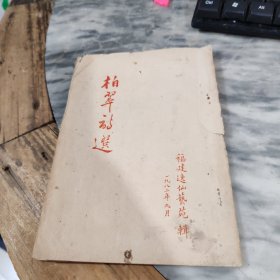 柏翠詩選
福建逸仙藝苑 輯
一九八三年九月